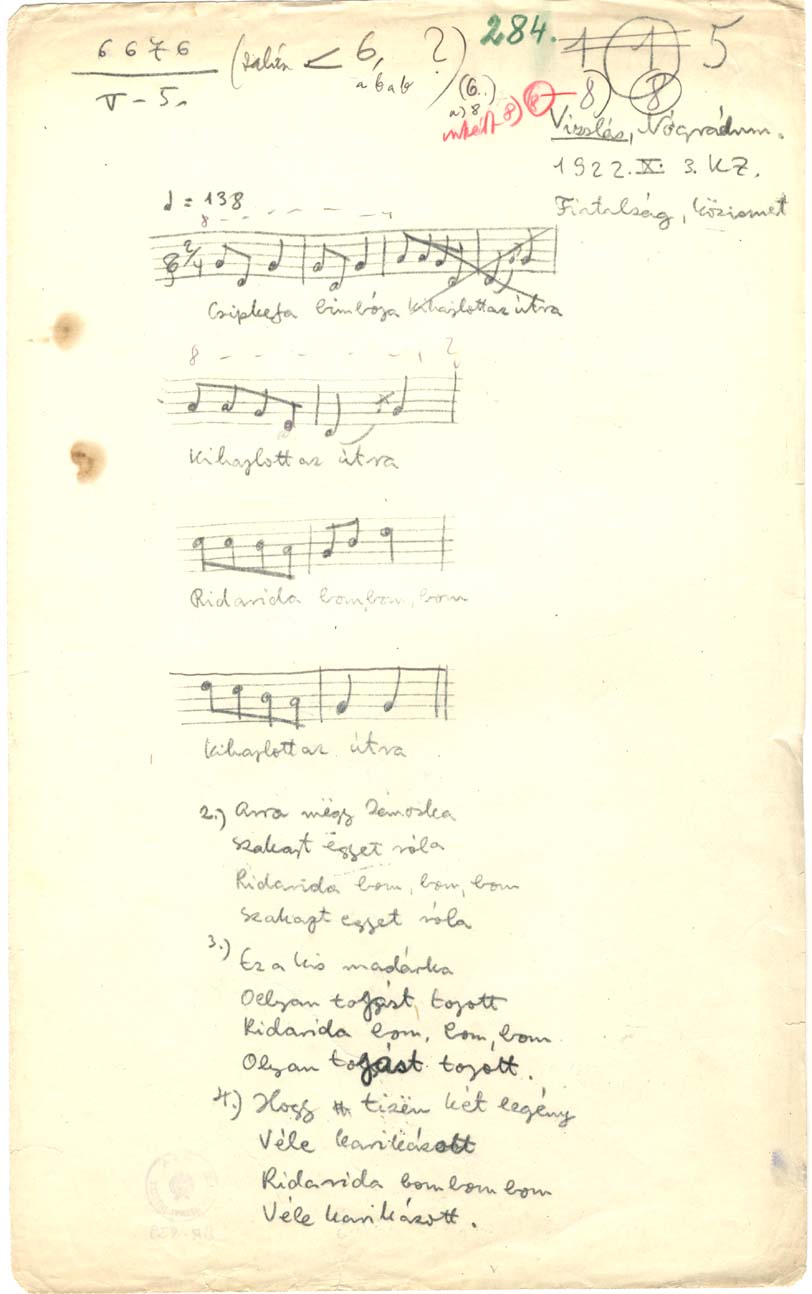 6 6 7 6
V - 5.
( < 6, ? )
a b a b
284.
1 1 5
(6.)
a) 8)
inkább 8) 6 — 8) 8
Vizslás, Nógrádm.
1922. IX. 3. KZ.
Fiatalság, közismert
♩ = 138
8
2/4
Csipkefa bimbója Kihajlott az útra
8
Kihajlott az útra
Ridarida bom, bom, bom
Kihajlott az útra
2.) Arra mégy Jánoska
Szakajt égyet róla
Ridarida bom, bom, bom
Szakajt egyet róla
3.) Ez a kis madárka
Oolyan tojást tojott
Ridarida bom, bom, bom
Olyan tojást tojott.
4.) Hogy tizën két legény
Véle karikázott
Ridarida bom bom bom
Véle karikázott.